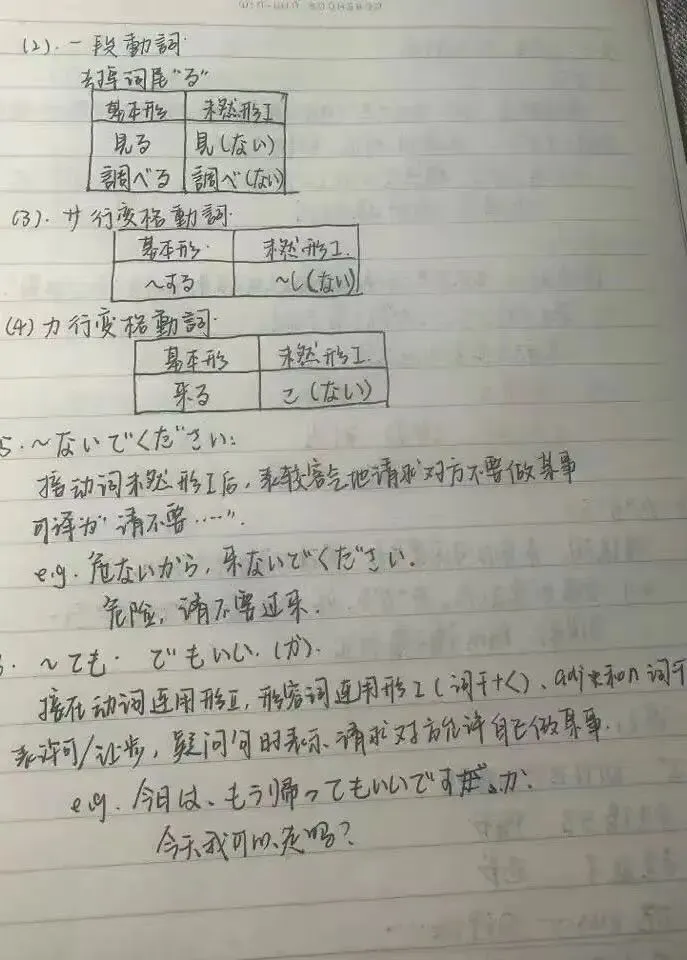 (2). 一段動詞.
去掉词尾"る"
基本形 未然形I
見る 見(ない)
調べる 調べ(ない)
(3). サ行変格動詞.
基本形. 未然形I.
～する ～し(ない)
(4) カ行変格動詞.
基本形 未然形I.
来る こ(ない)
5. ～ないでください:
接动词未然形I后, 表较客气地请求对方不要做某事
可译为"请不要……".
e.g. 危ないから, 来ないでください.
危险, 请不要过来.
～ても. でもいい. (か).
接在动词连用形II, 形容词连用形I(词干+く)、adj动和n词干
表许可/让步, 疑问句时表示请求对方允许自己做某事.
e.g. 今日は、もう帰ってもいいですか.
今天我可以走吗?